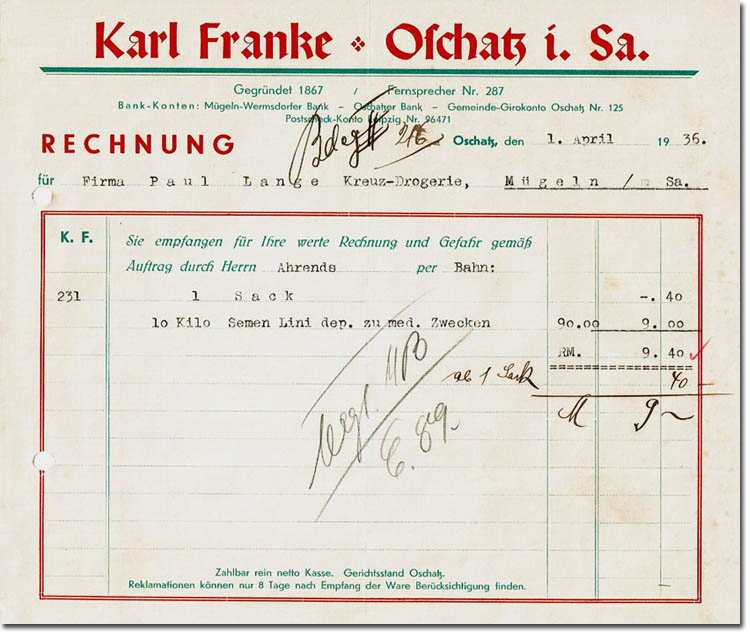 Karl Franke ❖ Oschatz i. Sa.
Gegründet 1867 / Fernsprecher Nr. 287
Bank-Konten: Mügeln-Wermsdorfer Bank – Oschatzer Bank – Gemeinde-Girokonto Oschatz Nr. 125
Postscheck-Konto Leipzig Nr. 96471
RECHNUNG Oschatz, den 1. April 1936.
für Firma Paul Lange Kreuz-Drogerie, Mügeln / Sa.
K. F. Sie empfangen für Ihre werte Rechnung und Gefahr gemäß
Auftrag durch Herrn Ahrends per Bahn:
231 1 Sack -.40
10 Kilo Semen Lini dep. zu med. Zwecken 90.00 9.00
RM. 9.40
ab 1 Sack 40 —
M 9 ~
E. 89.
Zahlbar rein netto Kasse. Gerichtsstand Oschatz.
Reklamationen können nur 8 Tage nach Empfang der Ware Berücksichtigung finden.